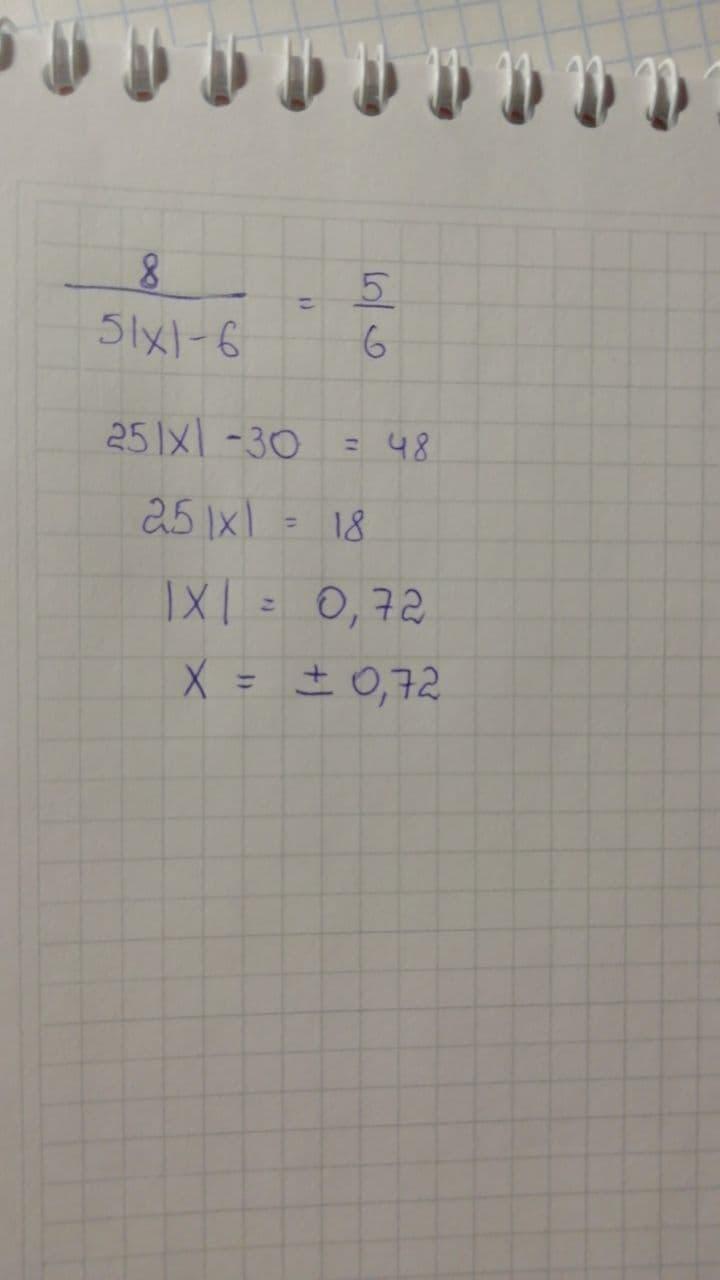 8/(5|x|-6) = 5/6
25|x| -30 = 48
25|x| = 18
|x| = 0,72
x = ± 0,72